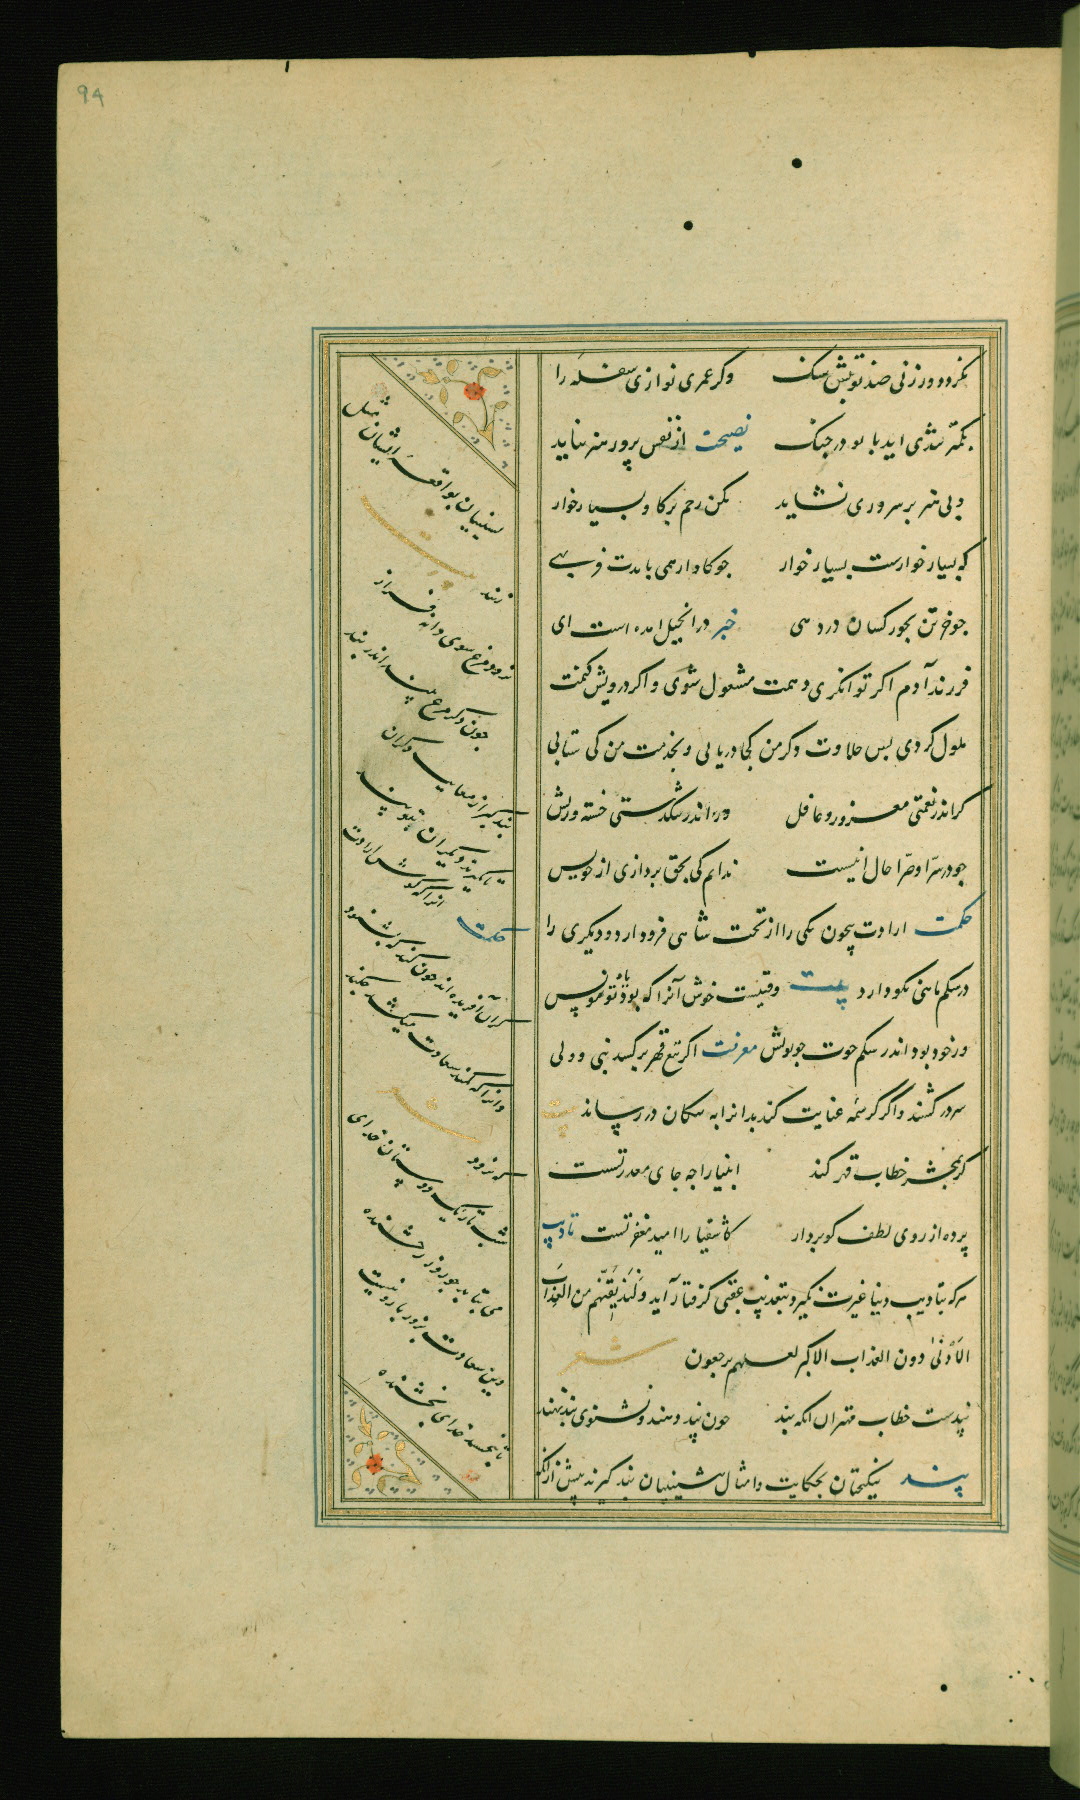 94
نگردد ور زنی صد نوبتش سنک وکر عمری نوازی سفله را
بکمتر تندی اید با تو در جنک نصیحت از نفس پرور هنر نیاید
و بی هنر بر سروری نشاید مکن رحم بر کاو بسیار خوار
که بسیار خوارست بسیار خوار جو کاو ار همی بایدت فربهی
جو خر تن بجور کسان در دهی خبر در انجیل امده است ای
فرزند آدم اکر توانکری دهمت مشغول شوی و اکر درویش کنمت
ملول کردی بس حلاوت دکر من کجا دریابی و بخدمت من کی شتابی
کر اندر نعمتی مغرور و غافل ور اندر تنکدستی خسته و ریش
جو در سرّا و ضرّا حال انیست ندانم کی بحق پردازی از خویش
حکمت ارادت بیچون یکی را از تخت شاهی فرود ارد و دیکری را
در شکم ماهی نکو دارد بیت وقتیست خوش آنرا که بود ذکر تو مونس
ور خود بود اندر شکم حوت جو یونش معرفت اکر تیغ قهر برکشد نبی و ولی
سر در کشند و اگر کرشمه عنایت کند بدانرا به نیکان در رساند بیت
کر بمحشر خطاب قهر کند انبیا را جه جای معذرتست
پرده از روی لطف کو بردار کاشقیا را امید مغفرتست تادیب
هرکه بتادیب دنیا غیرت نکیرد بتعذیب عقبی کرفتار آید وَلَنُذیقَنَّهُم مِنَ العَذابِ
الاَدنیٰ دون العذاب الاکبر لعلهم یرجعون شعر
پندست خطاب مهتران انکه بند جون پند دهند و نشنوی بند نهند
پند نیکبختان بحکایت و امثال پیشینیان پند کیرند پیش از انکه
پسینیان بواقعه ایشان مثل
زنند بیت
نرود مرغ سوی دانه فراز
جون دکر مرغ بیند اندر بند
پند کیر از مصایب دکران
تا نکیرند دیکران بتو پند
حکمت انرا که کوش ارادت
کران آفریده اند جون کند که بشنود
وانرا که کمند سعادت میکشد جکند
که نرود شعر
شب تاریک دوستان خدای
می بتابد جو روز رخشنده
وین سعادت بزور بازو نیست
تا نبخشد خدای بخشنده